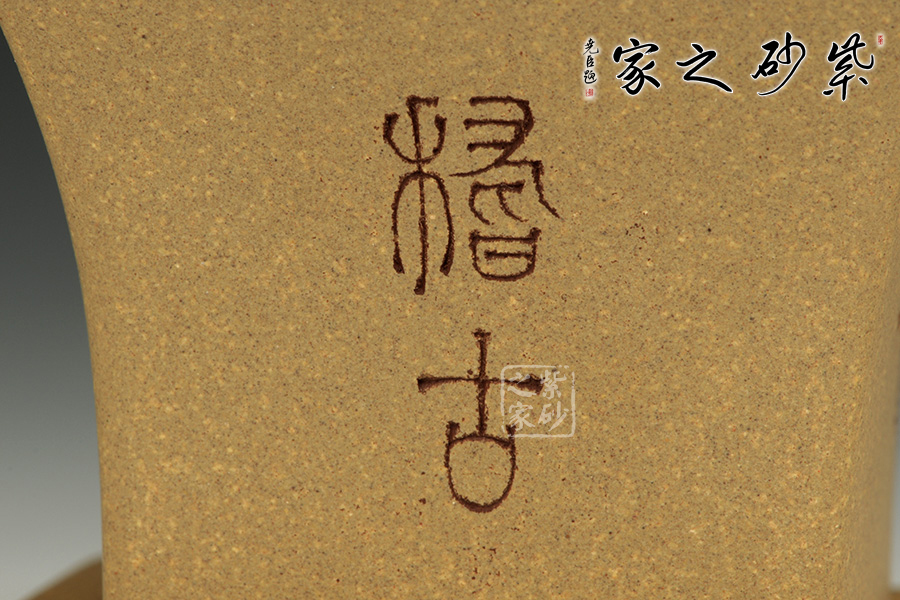 紫砂之家
尧臣题
稽古
紫砂之家